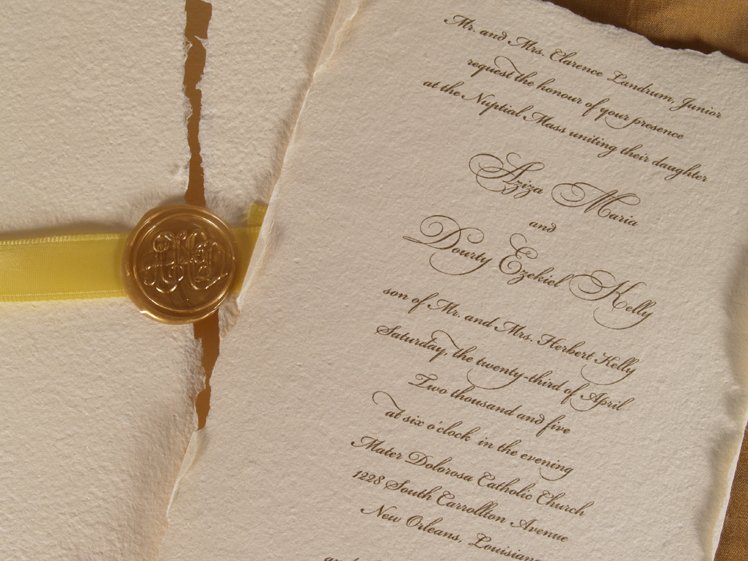 Mr. and Mrs. Clarence Landrum, Junior
request the honour of your presence
at the Nuptial Mass uniting their daughter
Aziza Maria
and
Dowty Ezekiel Kelly
son of Mr. and Mrs. Herbert Kelly
Saturday, the twenty-third of April
Two thousand and five
at six o'clock in the evening
Mater Dolorosa Catholic Church
1228 South Carrollton Avenue
New Orleans, Louisiana